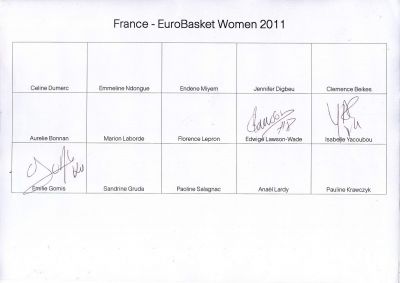 France - EuroBasket Women 2011
Celine Dumerc Emmeline Ndongue Endene Miyem Jennifer Digbeu Clemence Beikes
Aurelie Bonnan Marion Laborde Florence Lepron Edwige Lawson-Wade Isabelle Yacoubou
Emilie Gomis Sandrine Gruda Paoline Salagnac Anaël Lardy Pauline Krawczyk